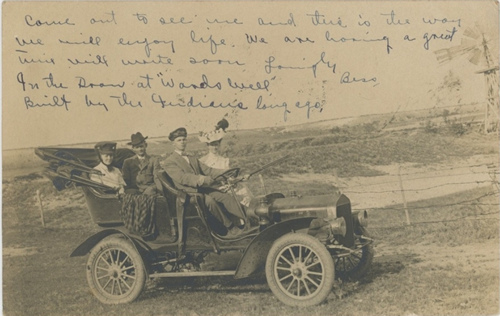 Come out to see me and this is the way
we will enjoy life. We are having a great
time will write soon Lovingly
Bess
In the Draw at "Wards Well"
Built by the Indians long ago,